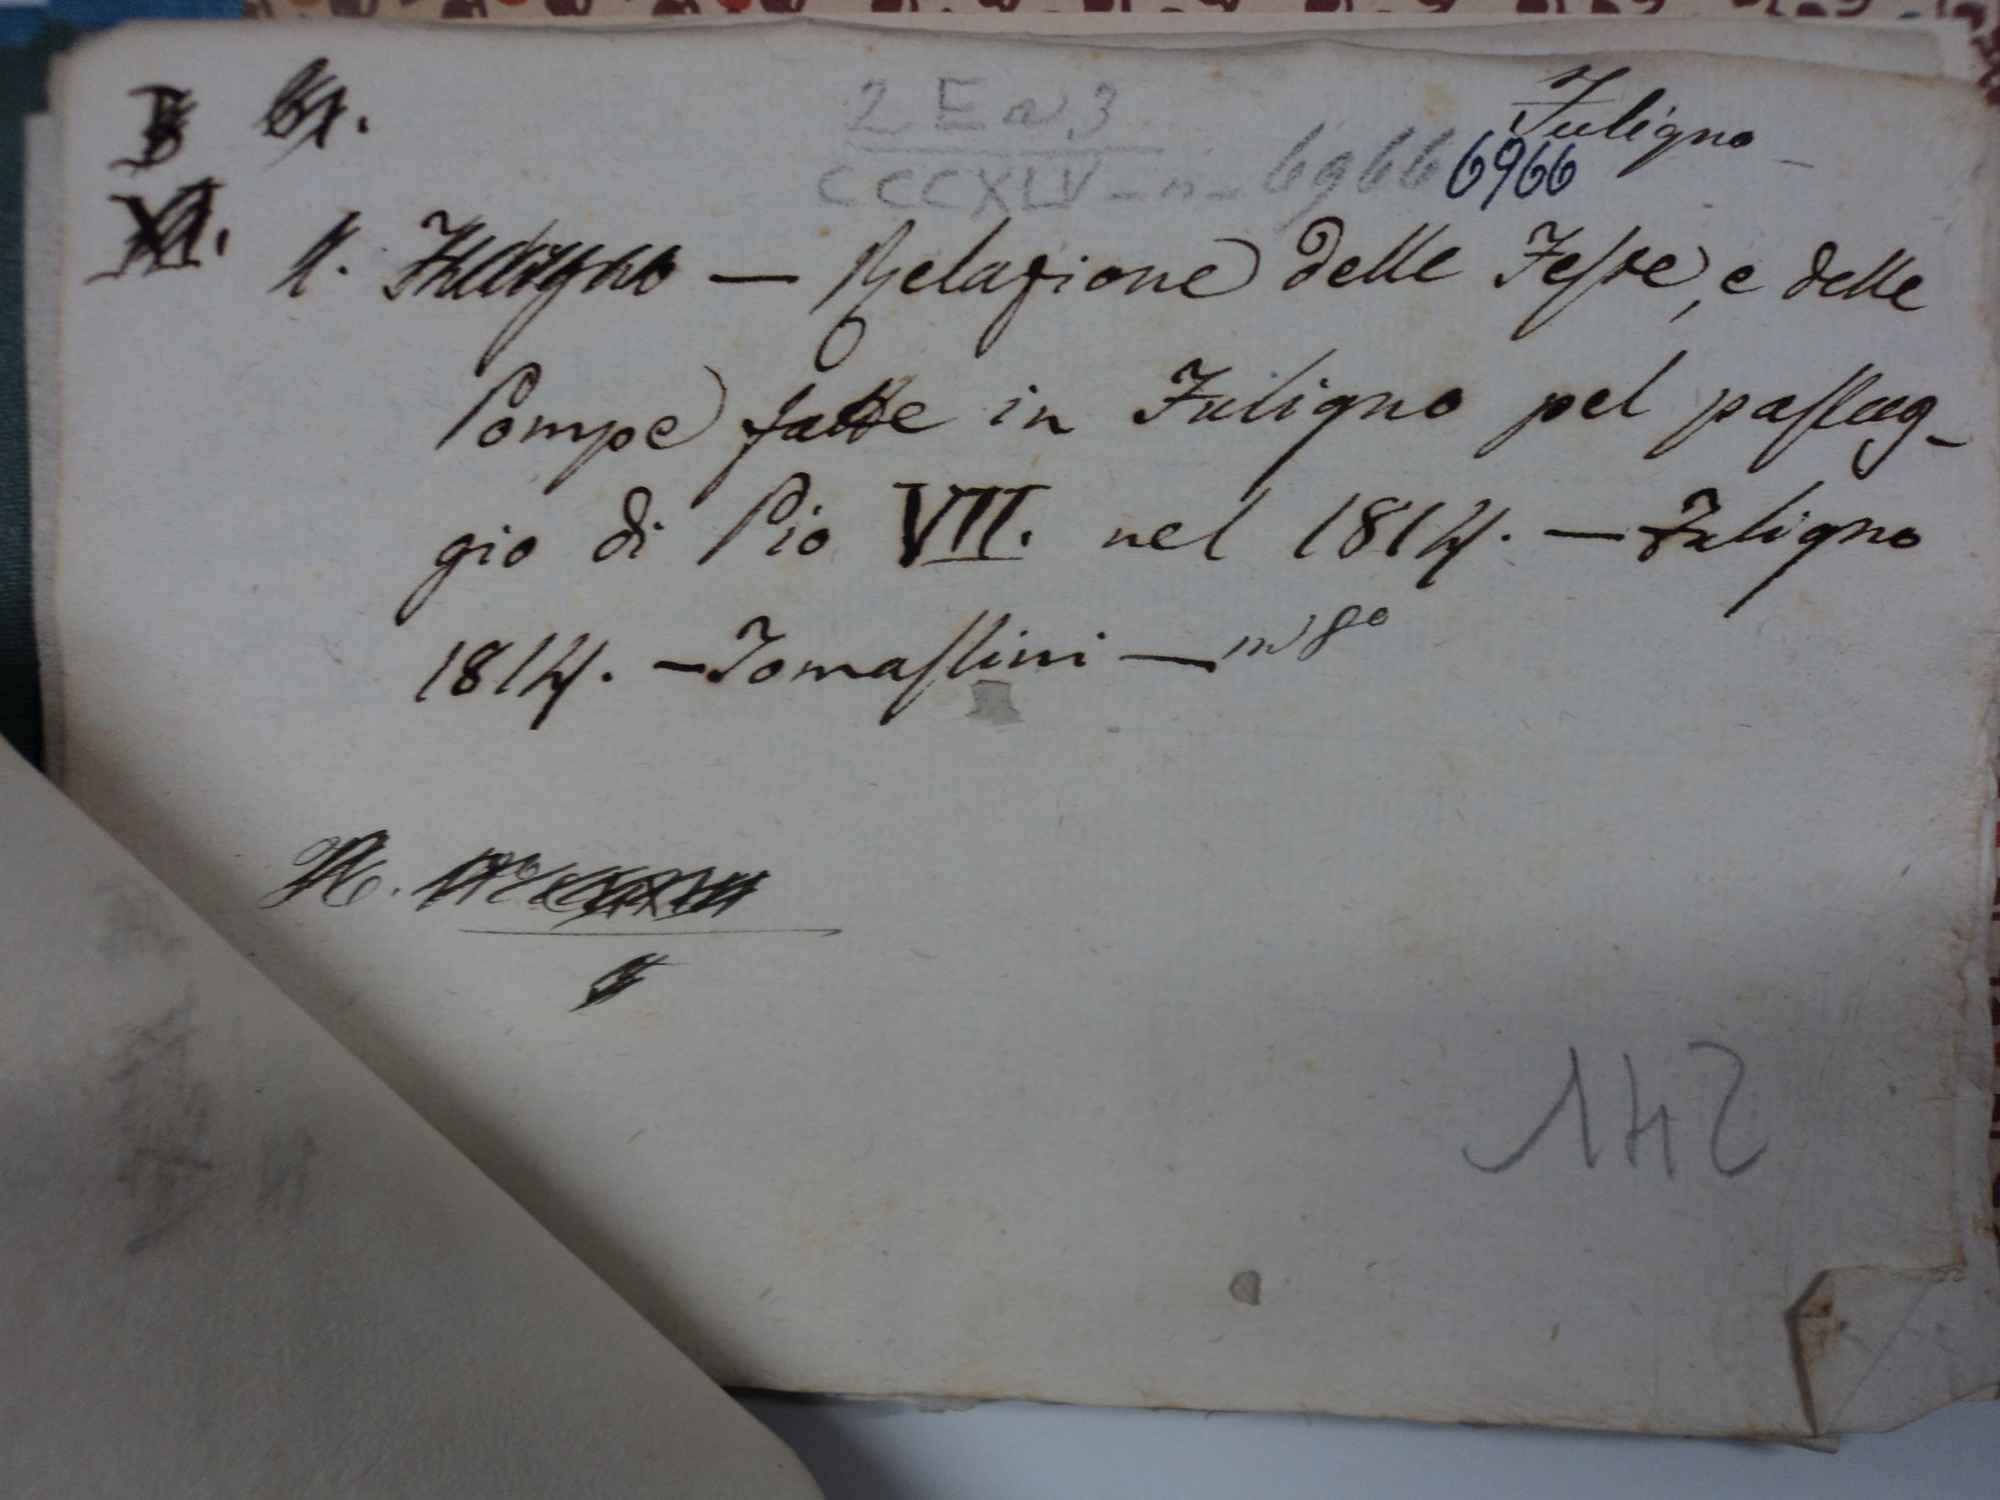 2 E n 3
Fuligno
CCCXLIV - n - 6966 6966
Fuligno — Relazione delle Feste, e delle
Pompe fatte in Fuligno pel passag-
gio di Pio VII. nel 1814. — Fuligno
1814. — Tomassini — in 8º
142